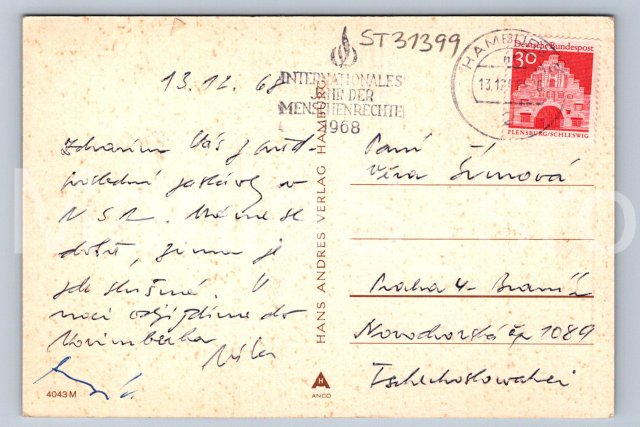 ST31399
HAMBURG
13.12.68
INTERNATIONALES
JAHR DER
MENSCHENRECHTE
1968
Deutsche Bundespost
30
FLENSBURG/SCHLESWIG
13.12.
2
Zdravím Vás z
poslední zastávky v
NSR. Máme se
dobře, zima je
zde slušná. V
noci odjíždíme do
Norimberka
HANS ANDRES VERLAG HAMBURG
Paní
Věra
Praha 4 - Braník
Novodvorská čp 1089
Tschechoslowakei
4043 M
H
ANCO